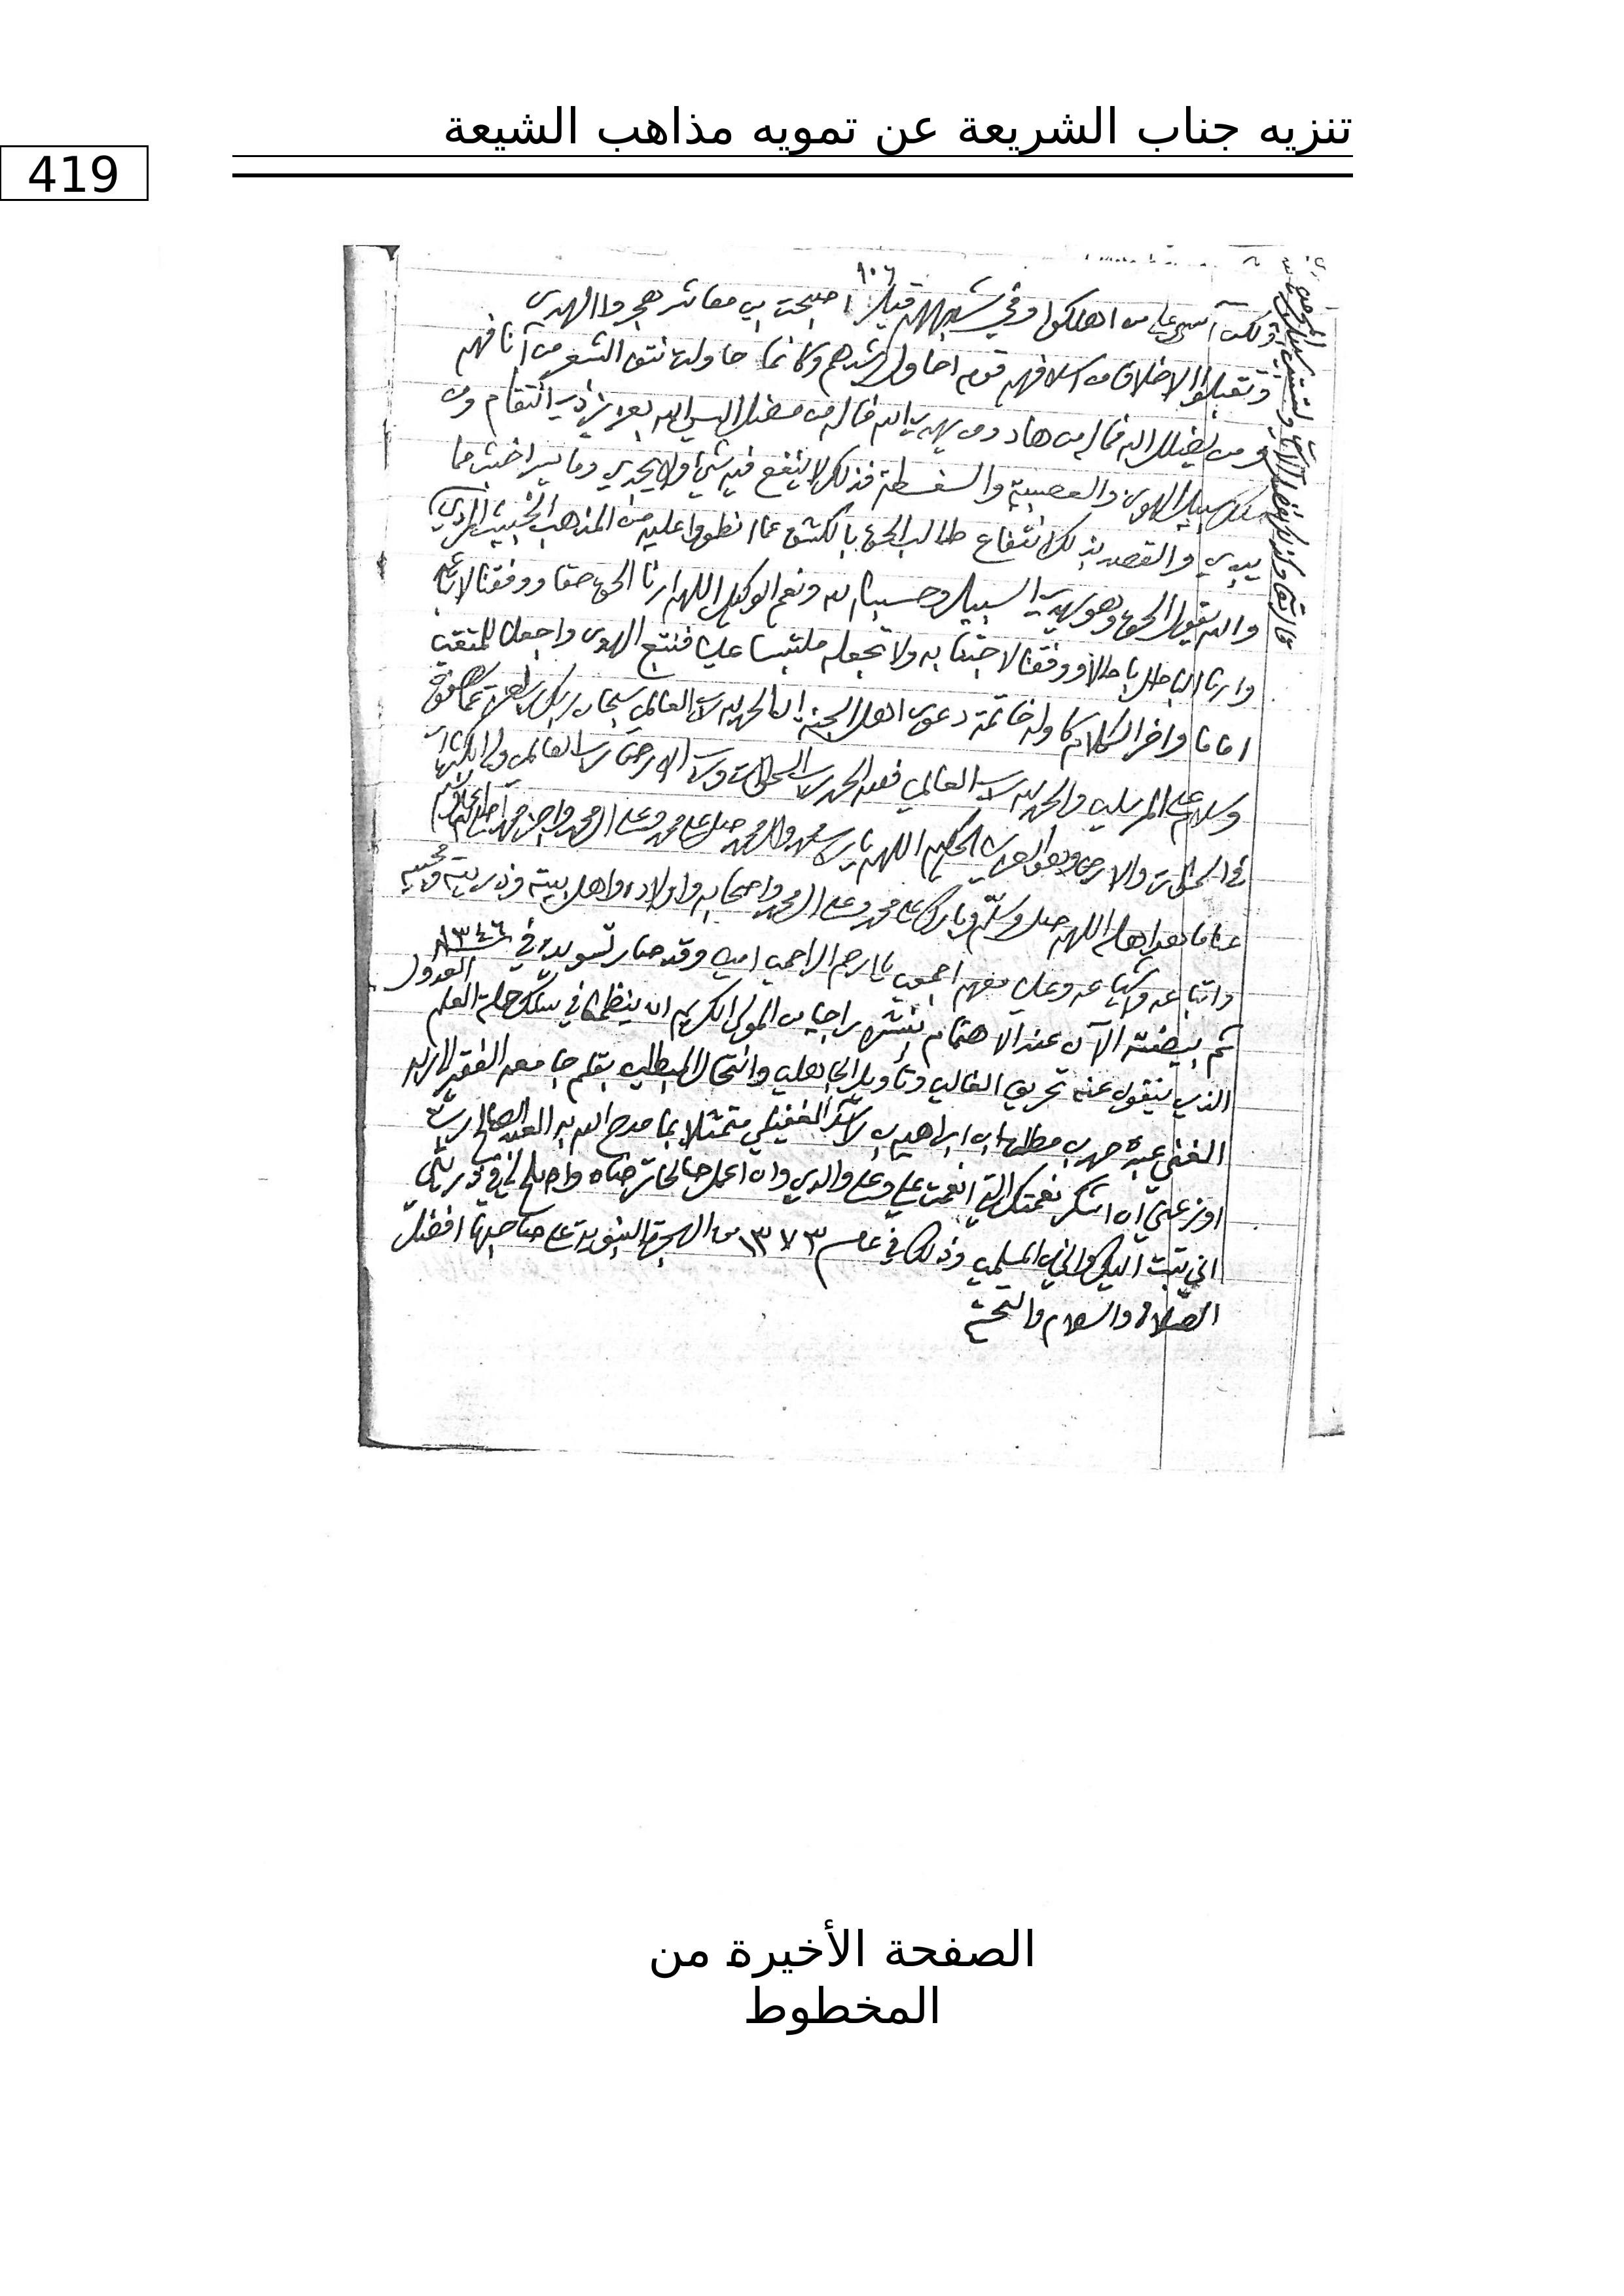 تنزيه جناب الشريعة عن تمويه مذاهب الشيعة
419
١٠٦
ولكن آسى على من اهلكوا وفي شبههم قيل: اصبحت بين معاشر هجروا الهدى
وتقبلوا الاخلاق من اسلافهم قوم احاول رشدهم وكانما حاولت نتف الشعر من آنافهم
ومن يضلل الله فما له من هاد ومن يهدي الله فما له من مضل اليس الله بعزيز ذي انتقام ومن
سلك سبيل الهوى والعصبية والسفسطة فذلك لا ينفع فيه شيئ ولا يجدي وما يسر اخبث مما
يبدي والقصد بذلك انتفاع طالب الحق بالكشف عما انطووا عليه من المذهب الخبيث الردي
والله يقول الحق وهو يهدي السبيل وحسبنا الله ونعم الوكيل اللهم ارنا الحق حقا ووفقنا لاتباعه
وارنا الباطل باطلا ووفقنا لاجتنابه ولا تجعله ملتبسا علينا فنتبع الهوى واجعلنا للمتقين
اماما واخر الكلام كاوله خاتمة دعوى اهل الجنة ان الحمد لله رب العالمين سبحان ربك رب العزة عما يصفون
وسلام على المرسلين والحمد لله رب العالمين فلله الحمد رب السموات ورب الارض رب العالمين وله الكبرياء
في السموات والارض وهو العزيز الحكيم اللهم يا رب محمد وال محمد صل على محمد وعلى ال محمد واجز محمدا
عنا ما هو اهله اللهم صل وسلم وبارك على محمد وعلى ال محمد واصحابه واولاده واهل بيته وذريته ومحبيه
واتباعه واشياعه وعلينا معهم اجمعين يا ارحم الراحمين امين وقد صار تسويده في ١٣٤٦
ثم بيضته الآن عند الاهتمام بنشره راجيا من المولى الكريم ان ينظمنا في سلك حملة العلم العدول
الذين ينفون عنه تحريف الغالين وتأويل الجاهلين وانتحال المبطلين بقلم جامعه الفقير الى ربه
الغني عبده بن مطلق بن ابراهيم متمثلا بما مدح الله به العبد الصالح رب
اوزعني ان اشكر نعمتك التي انعمت علي وعلى والدي وان اعمل صالحا ترضاه واصلح لي في ذريتي
اني تبت اليك واني من المسلمين وذلك في عام ١٣٧٣ من الهجرة النبوية على صاحبها افضل
الصلاة والسلام والتحية
الصفحة الأخيرة من
المخطوط